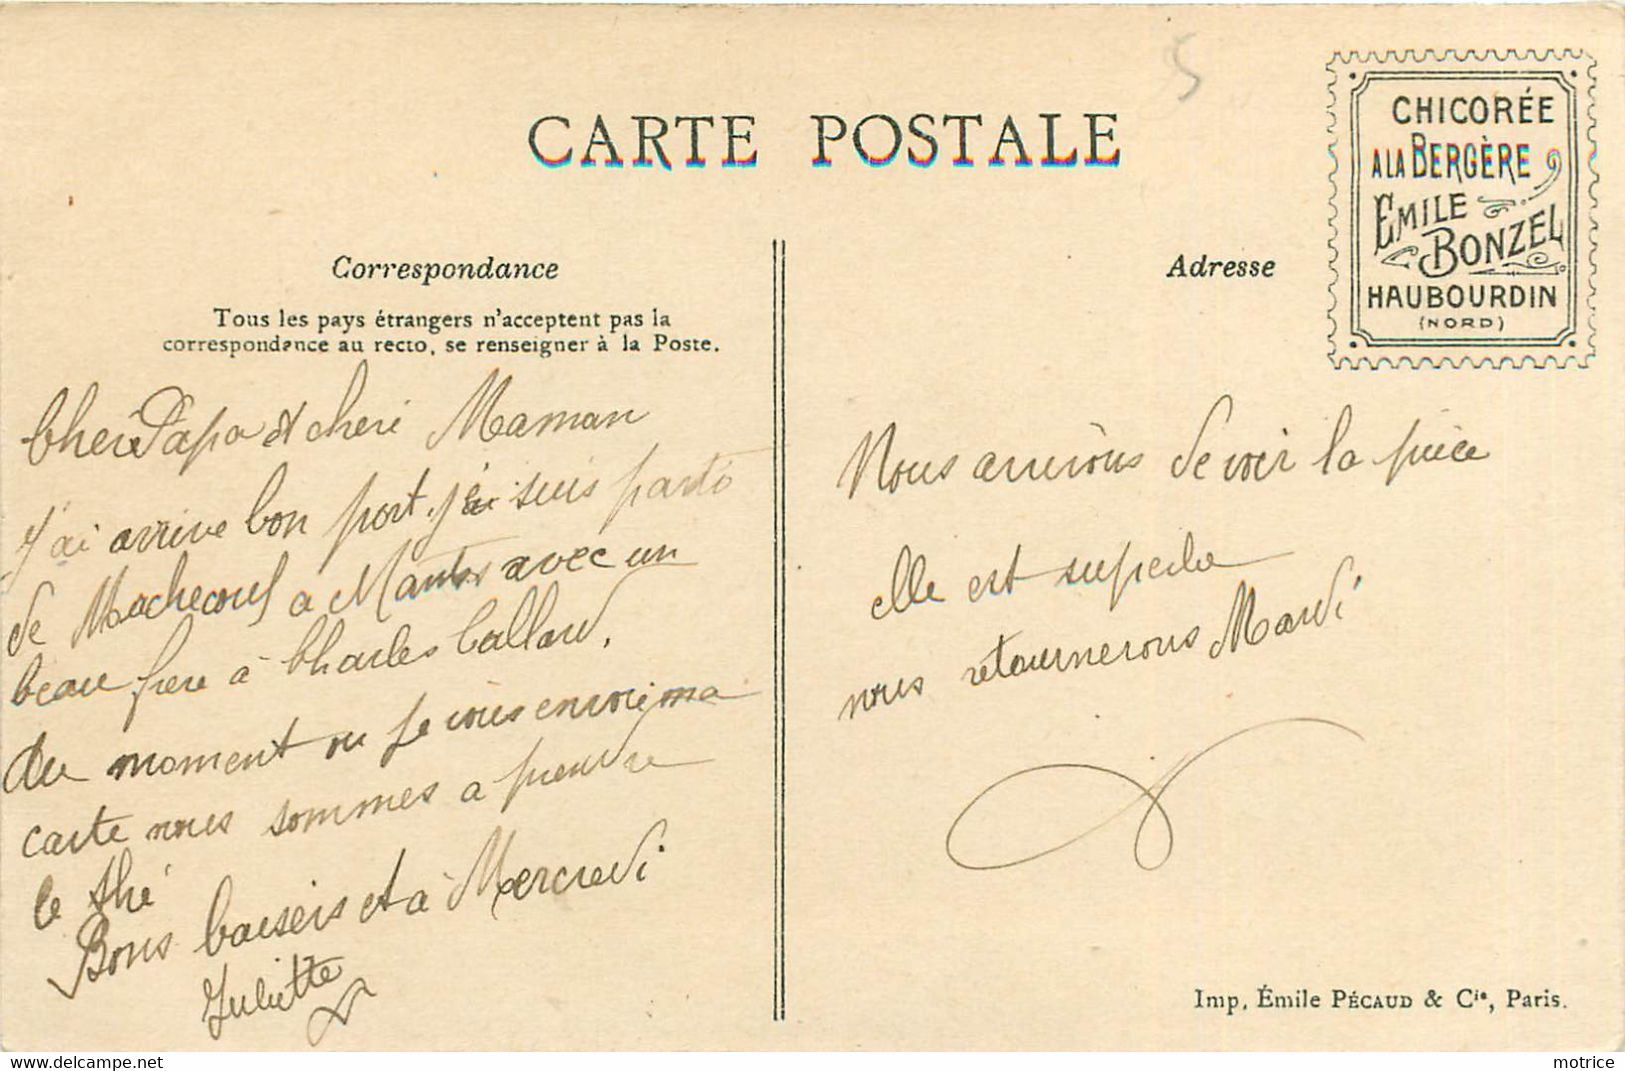 CARTE POSTALE
CHICORÉE
A LA BERGÈRE
EMILE
BONZEL
HAUBOURDIN
(NORD)
5
Correspondance
Tous les pays étrangers n'acceptent pas la
correspondance au recto, se renseigner à la Poste.
Cheri Papa et cheri Maman
J'ai arrive bon port. j'ai suis parti
de Machecoul a Nantes avec un
beau frere à Charles Callard.
Au moment ou je vous envoie ma
carte nous sommes a prendre
le thé
Bons baisers et à Mercredi
Juliette
Adresse
Nous arrivons de voir la pièce
elle est superbe
nous retournerons Mardi
Imp. Émile PÉCAUD & Cie, Paris.
delcampe.net
motrice